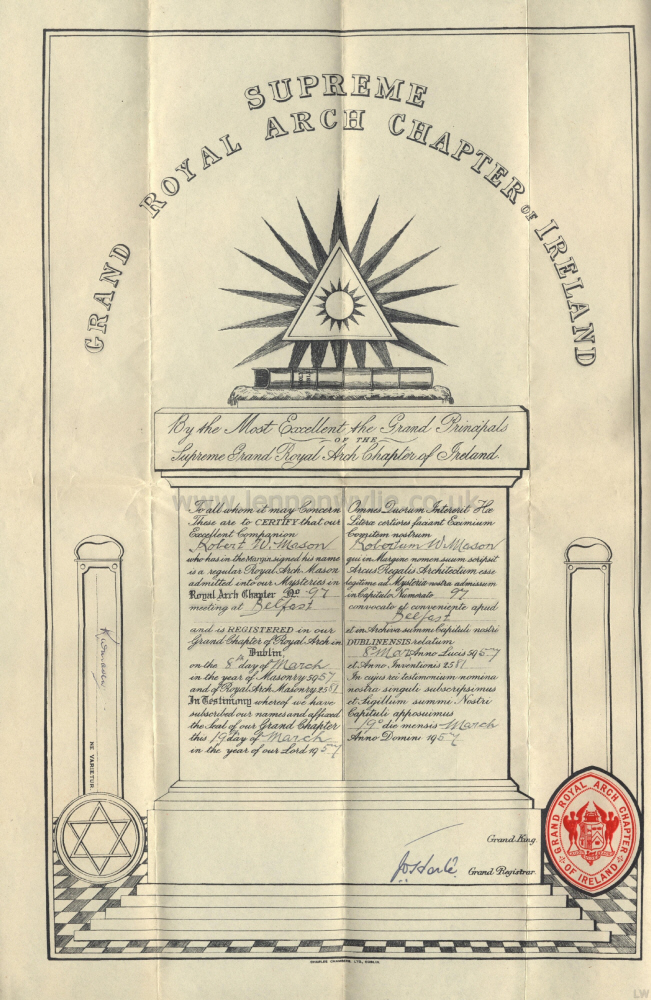 SUPREME
GRAND ROYAL ARCH CHAPTER OF IRELAND
By the Most Excellent the Grand Principals
OF THE
Supreme Grand Royal Arch Chapter of Ireland.
www.lennonwylie.co.uk
To all whom it may Concern
These are to CERTIFY that our
Excellent Companion
Robert W. Mason
who has in the Margin signed his name
is a regular Royal Arch Mason
admitted into our Mysteries in
Royal Arch Chapter No 97
meeting at Belfast
and is REGISTERED in our
Grand Chapter of Royal Arch in
Dublin,
on the 8th day of March
in the year of Masonry 5957
and of Royal Arch Masonry 2587
In Testimony whereof we have
subscribed our names and affixed
the Seal of our Grand Chapter
this 19 day of March
in the year of our Lord 1957
Omnes Quorum Intererit Hæ
Literæ certiores faciant Eximium
Comitem nostrum
Robertum W. Mason
qui in Margine nomen suum scripsit
Arcus Regalis Architectum esse
legitime ad Mysteria nostra admissum
in Capitulo Numerato 97
convocato et conveniente apud
Belfast
et in Archiva summi Capituli nostri
DUBLINENSIS relatum
8º Mar Anno Lucis 5957
et Anno Inventionis 2587
In cujus rei testimonium nomina
nostra singuli subscripsimus
et Sigillum summi Nostri
Capituli apposuimus
19º die mensis March
Anno Domini 1957
NE VARIETUR
Grand King.
Grand Registrar.
GRAND ROYAL ARCH CHAPTER
OF IRELAND
CHARLES CHAMBERS LTD., DUBLIN.
LW